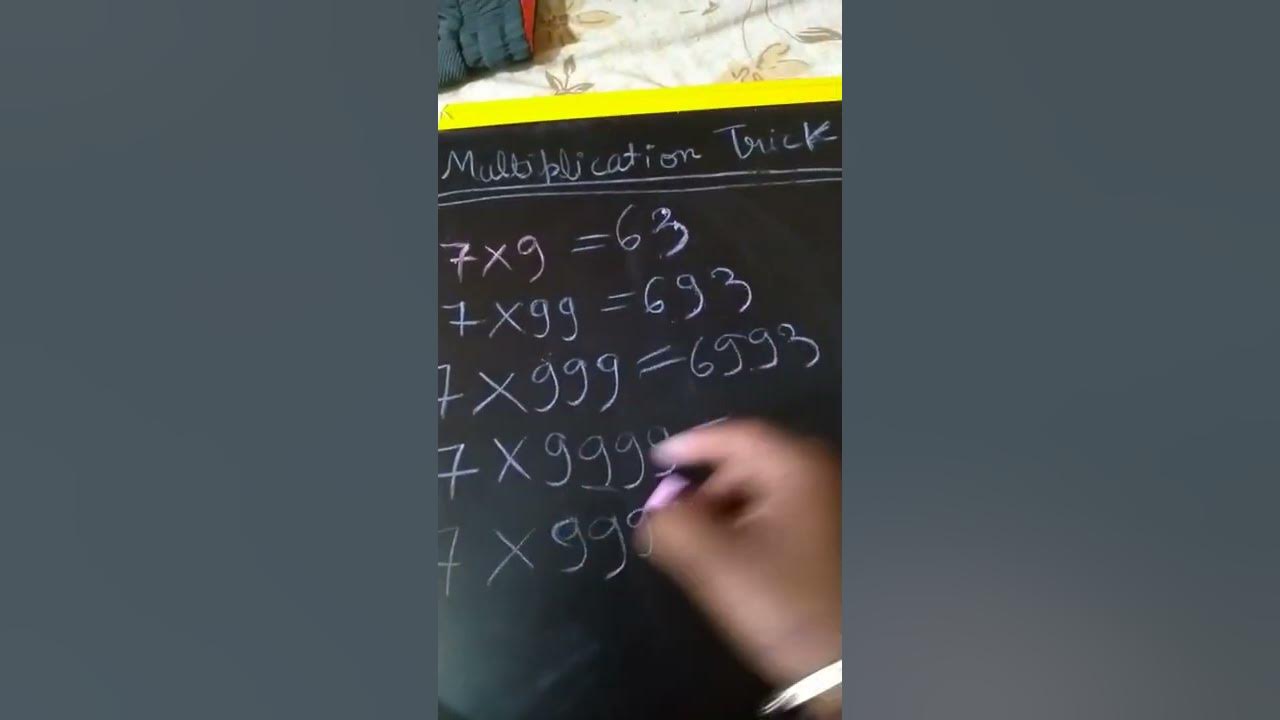 Multiplication Trick
7×9 =63
7×99 =693
7×999 =6993
7×9999 =
7×999